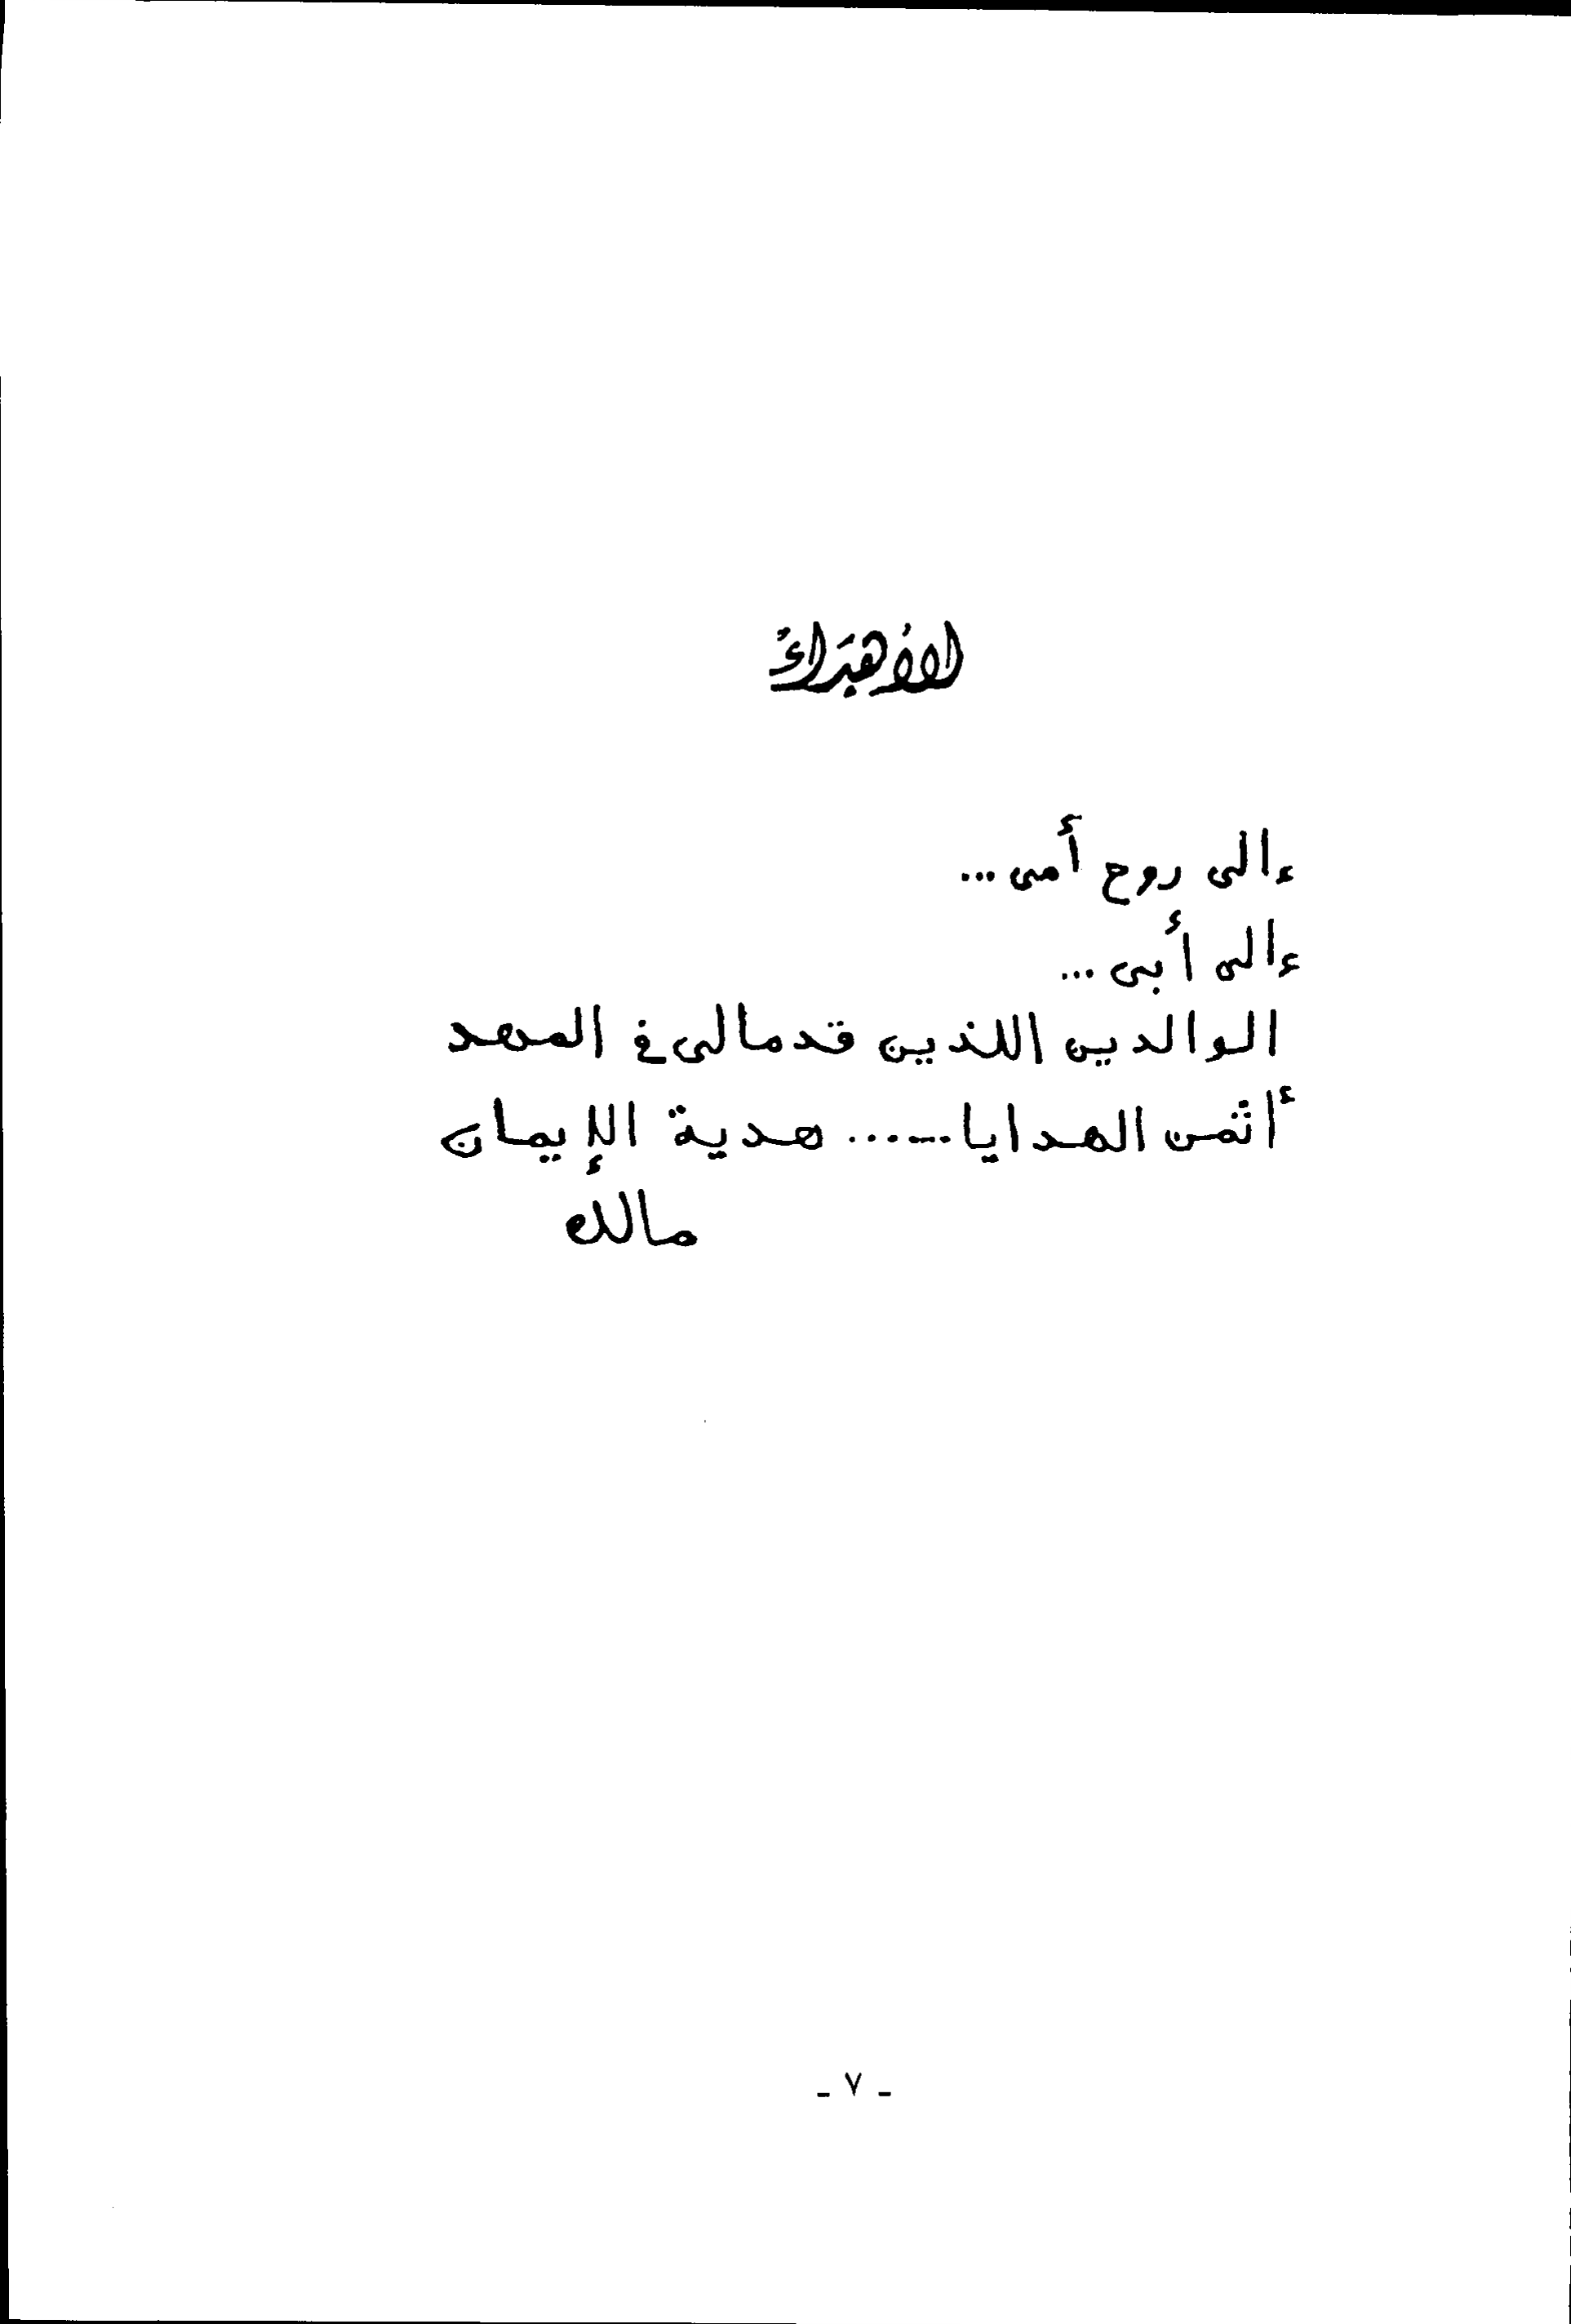 الإهداء
إلى روح أمى ...
إلى أبى ...
الوالدين اللذين قدما لى في المهد
أثمن الهدايا ...... هدية الإيمان
مالك
- ٧ -